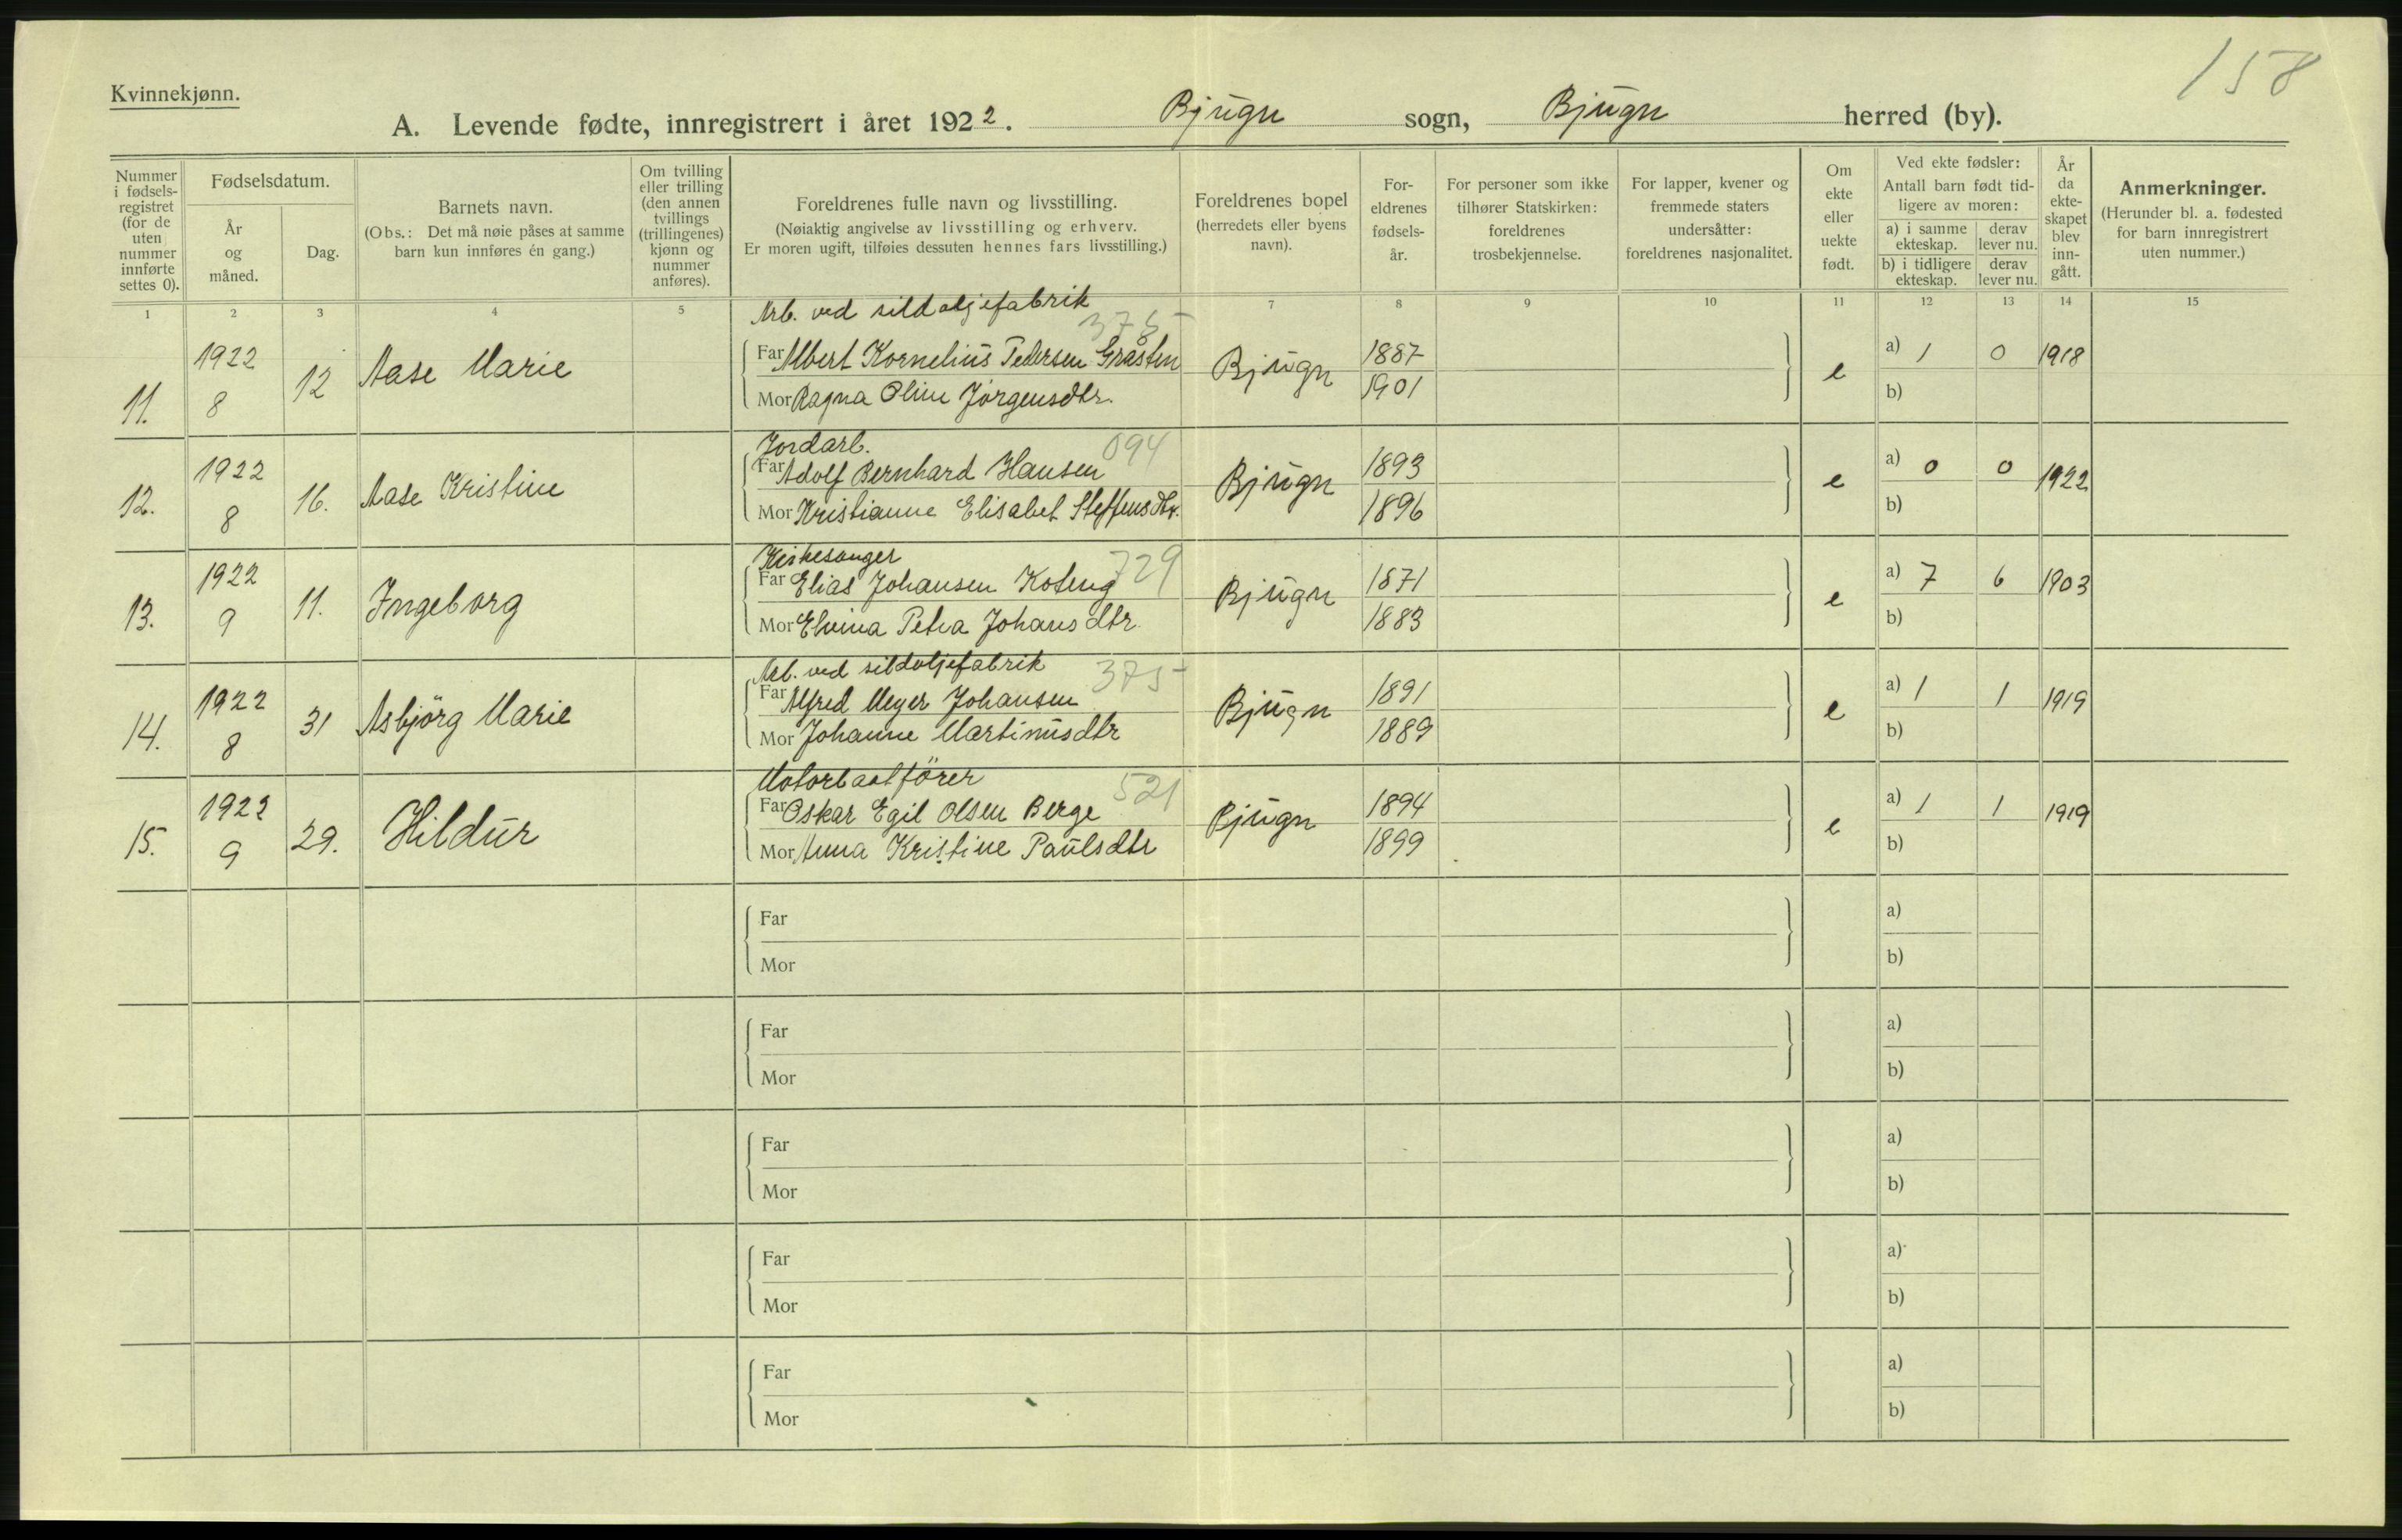 158
Kvinnekjønn.
A. Levende fødte, innregistrert i året 1922. Bjugn sogn, Bjugn herred (by).
Nummer i fødselsregistret (for de uten nummer innførte settes 0).
Fødselsdatum.
År og måned.
Dag.
Barnets navn.
(Obs.: Det må nøie påses at samme barn kun innføres én gang.)
Om tvilling eller trilling (den annen tvillings (trillingenes) kjønn og nummer anføres).
Foreldrenes fulle navn og livsstilling.
(Nøiaktig angivelse av livsstilling og erhverv.
Er moren ugift, tilføies dessuten hennes fars livsstilling.)
Foreldrenes bopel
(herredets eller byens navn).
Foreldrenes fødselsår.
For personer som ikke tilhører Statskirken: foreldrenes trosbekjennelse.
For lapper, kvener og fremmede staters undersåtter: foreldrenes nasjonalitet.
Om ekte eller uekte født.
Ved ekte fødsler:
Antall barn født tidligere av moren:
a) i samme ekteskap.
derav lever nu.
b) i tidligere ekteskap.
derav lever nu.
År da ekteskapet blev inngått.
Anmerkninger.
(Herunder bl. a. fødested for barn innregistrert uten nummer.)
1 2 3 4 5 7 8 9 10 11 12 13 14 15
Arb. ved sildoljefabrik
375
11. 1922 8 12 Aase Marie
Far Albert Kornelius Pedersen Gråsten Bjugn 1887 e a) 1 0 1918
Mor Ragna Oline Jörgensdtr. 1901 b)
Jordarb. 094
12. 1922 8 16. Aase Kristine
Far Adolf Bernhard Hansen Bjugn 1893 e a) 0 0 1922
Mor Kristianne Elisabet Steffensdtr. 1896 b)
Kirkesanger 729
13. 1922 9 11. Ingeborg
Far Elias Johansen Koteng Bjugn 1871 e a) 7 6 1903
Mor Elvina Petra Johansdtr. 1883 b)
Arb. ved sildoljefabrik 375
14. 1922 8 31 Asbjörg Marie
Far Alfred Meyer Johansen Bjugn 1891 e a) 1 1 1919
Mor Johanne Martinusdtr 1889 b)
Motorbaatförer 521
15. 1922 9 29. Hildur
Far Oskar Egil Olsen Berge Bjugn 1894 e a) 1 1 1919
Mor Anna Kristine Paulsdtr 1899 b)
Far a)
Mor b)
Far a)
Mor b)
Far a)
Mor b)
Far a)
Mor b)
Far a)
Mor b)